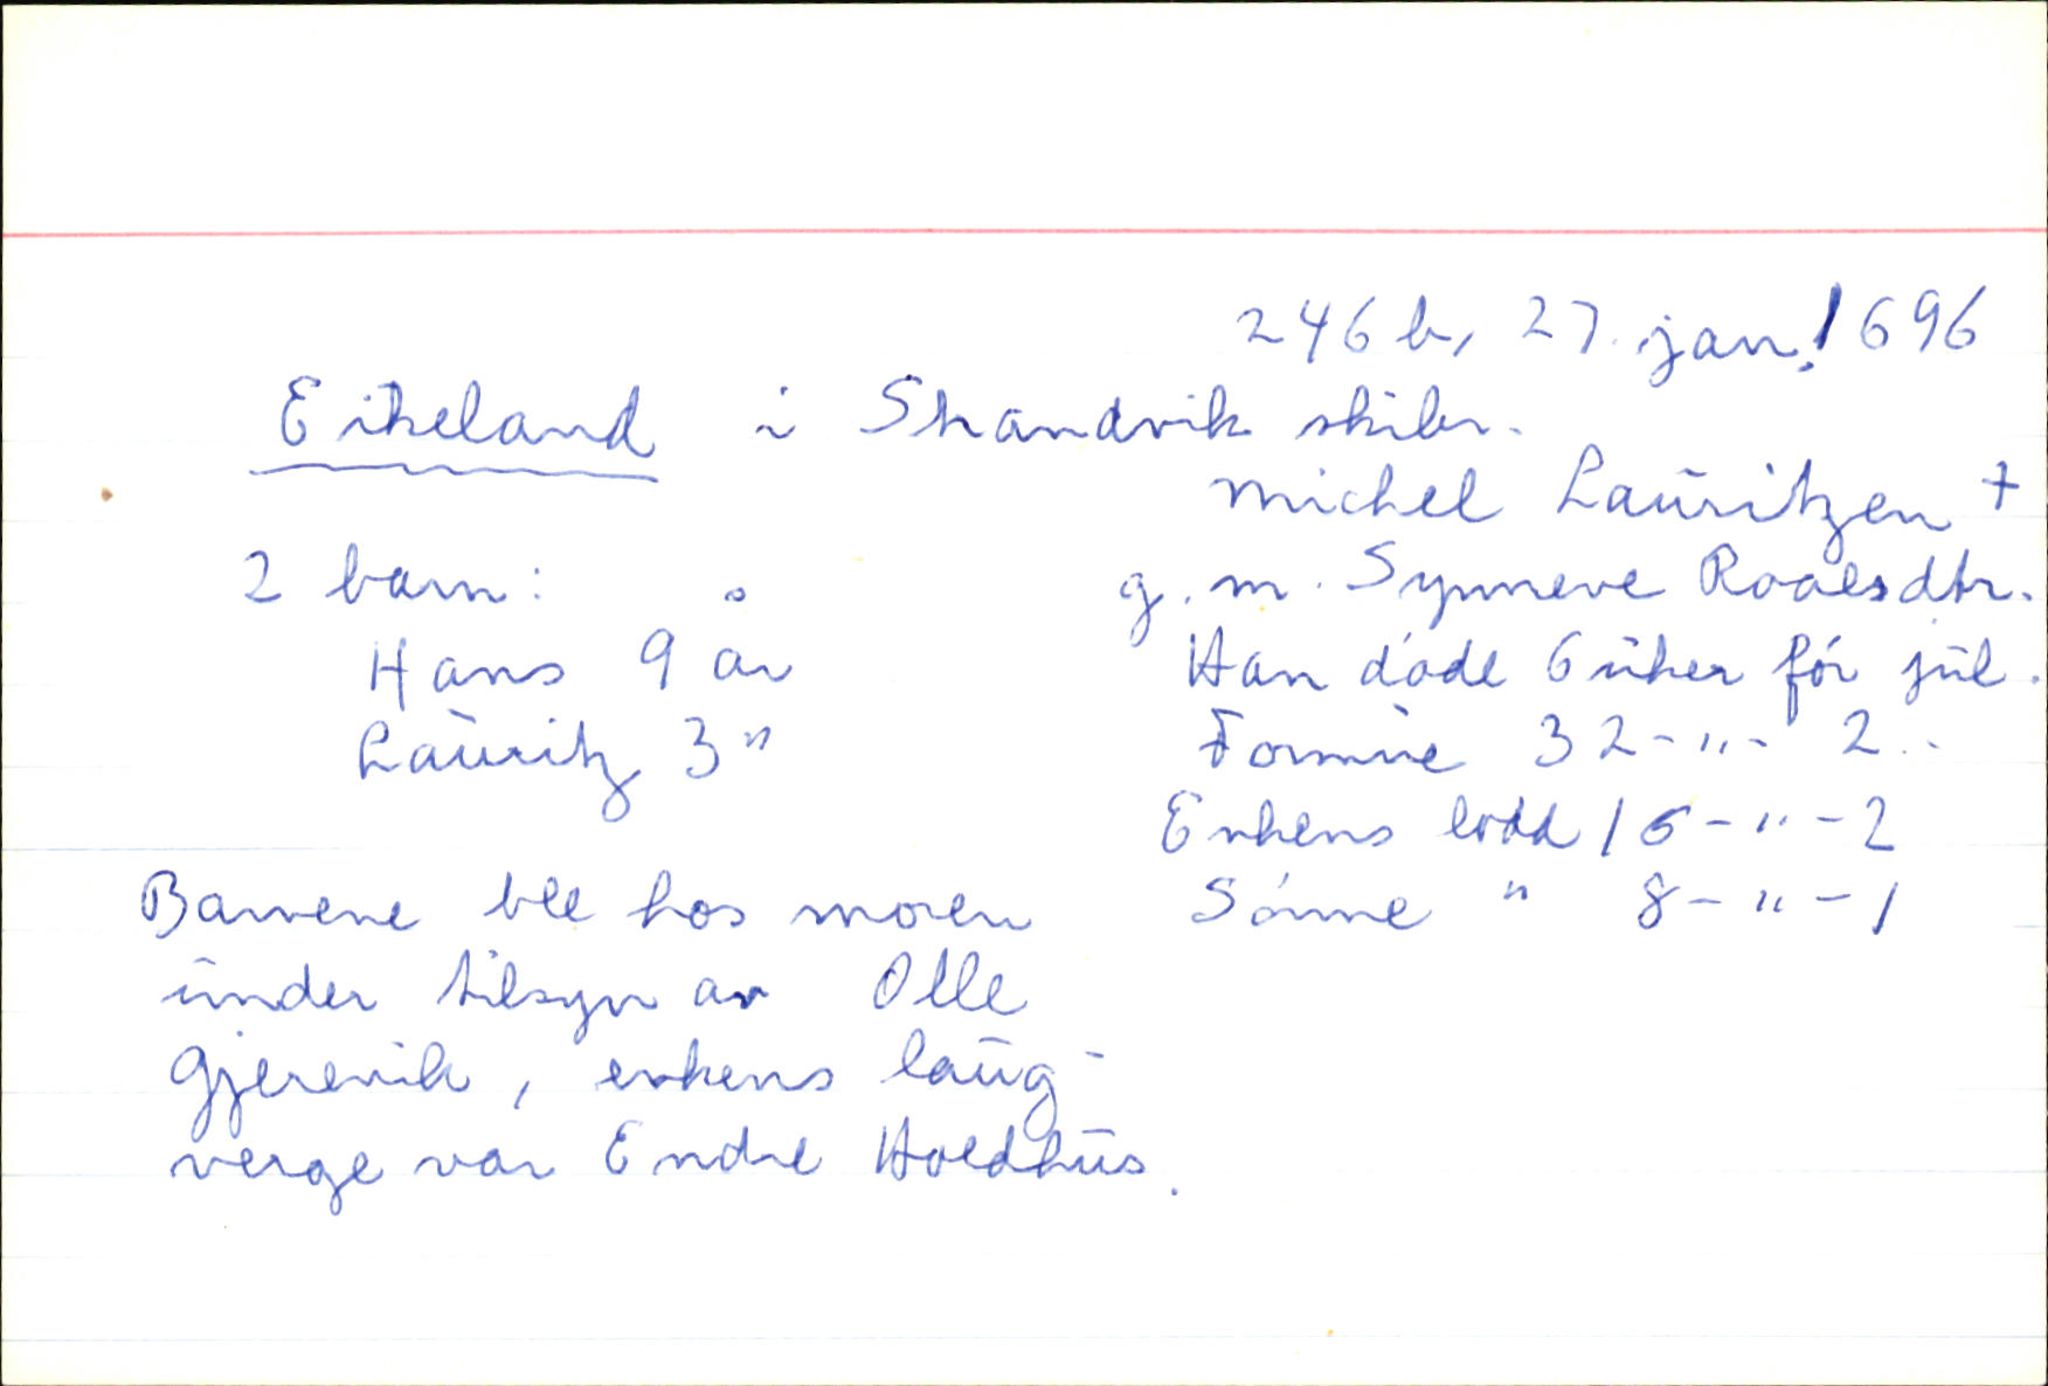 246 b, 27. jan. 1696
Eikeland i Strandvik skibr.
Michel Lauritzen +
g. m. Synneve Roalsdtr.
Han døde 6 uker før jul.
Formue 32-"- 2 -
Enkens lodd 16-"-2
Sønne " 8-"-1
2 barn:
Hans 9 år
Lauritz 3 "
Barnene ble hos moren
under tilsyn av Olle
Gjerevik, enkens laug-
verge var Endre Holdhus.